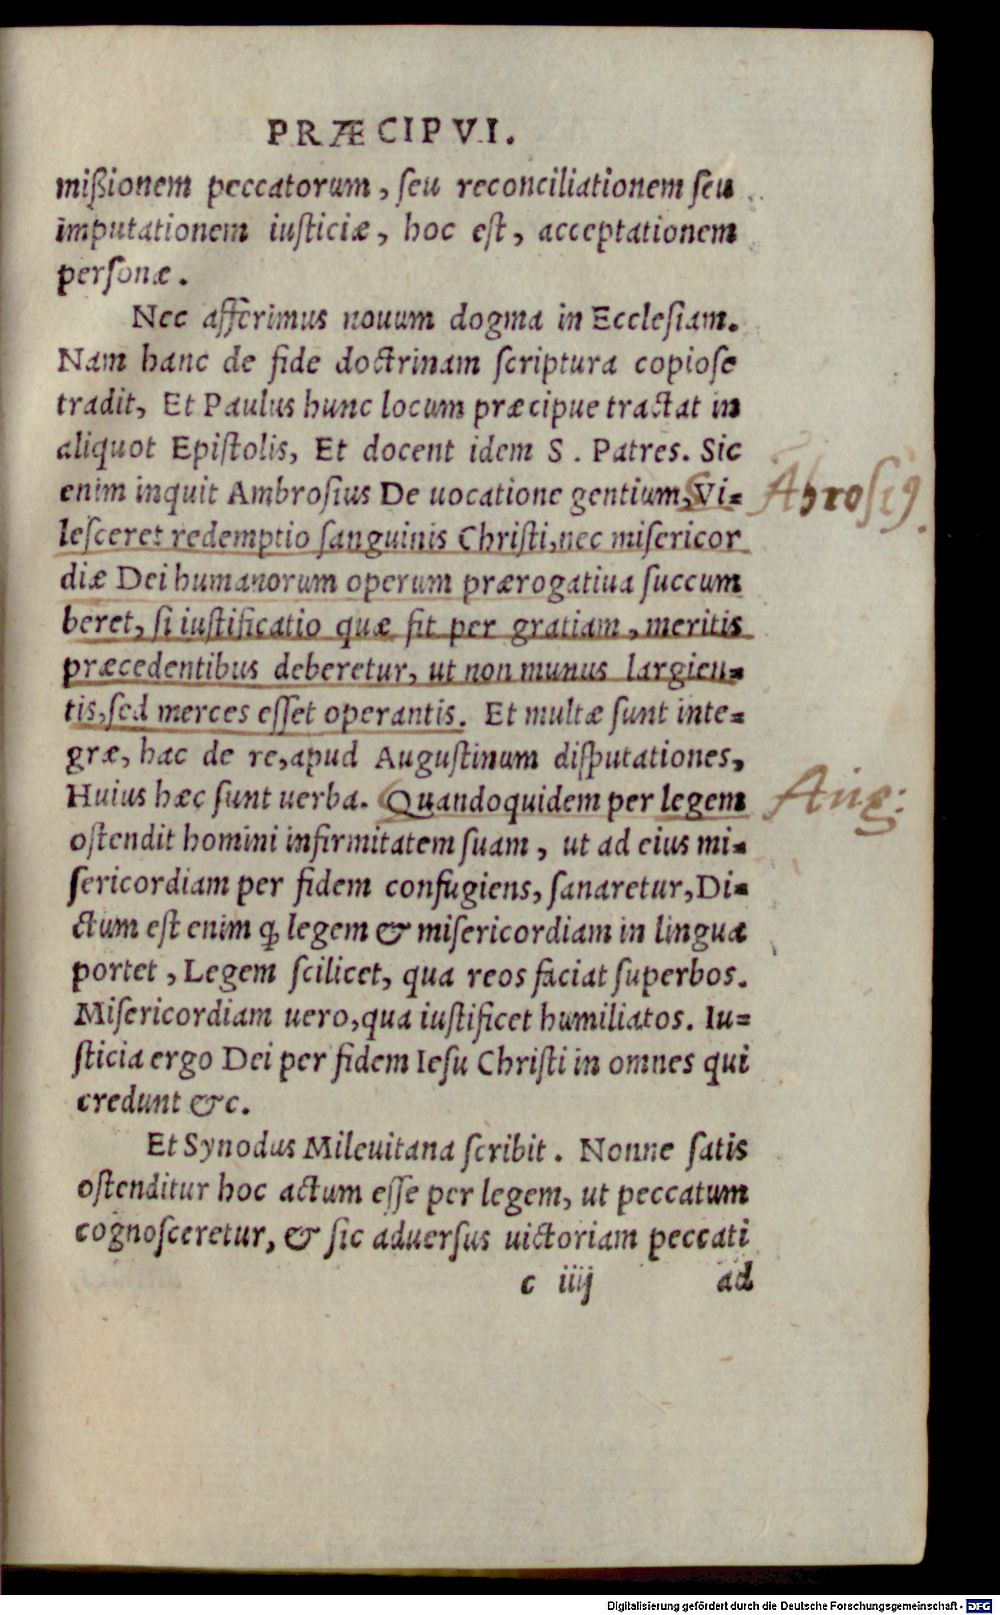 PRÆCIPVI.
mißionem peccatorum, ſeu reconciliationem ſeu
imputationem iuſticiæ, hoc eſt, acceptationem
perſonæ.
Nec afferimus nouum dogma in Eccleſiam.
Nam hanc de fide doctrinam ſcriptura copioſe
tradit, Et Paulus hunc locum præcipue tractat in
aliquot Epiſtolis, Et docent idem S. Patres. Sic
enim inquit Ambroſius De uocatione gentium, Vi=
Abroſiꝰ.
leſceret redemptio ſanguinis Chriſti, nec miſericor
diæ Dei humanorum operum prærogatiua ſuccum
beret, ſi iuſtificatio quæ fit per gratiam, meritis
præcedentibus deberetur, ut non munus largien=
tis, ſed merces eſſet operantis. Et multæ ſunt inte=
græ, hac de re, apud Auguſtinum diſputationes,
Huius hæc ſunt uerba. Quandoquidem per legem
Aug:
oſtendit homini infirmitatem ſuam, ut ad eius mi=
ſericordiam per fidem confugiens, ſanaretur, Di=
ctum eſt enim ꝙ legem & miſericordiam in lingua
portet, Legem ſcilicet, qua reos faciat ſuperbos.
Miſericordiam uero, qua iuſtificet humiliatos. Iu=
ſticia ergo Dei per fidem Ieſu Chriſti in omnes qui
credunt &c.
Et Synodus Mileuitana ſcribit. Nonne ſatis
oſtenditur hoc actum eſſe per legem, ut peccatum
cognoſceretur, & ſic aduerſus uictoriam peccati
c iiij ad
Digitalisierung gefördert durch die Deutsche Forschungsgemeinschaft - DFG